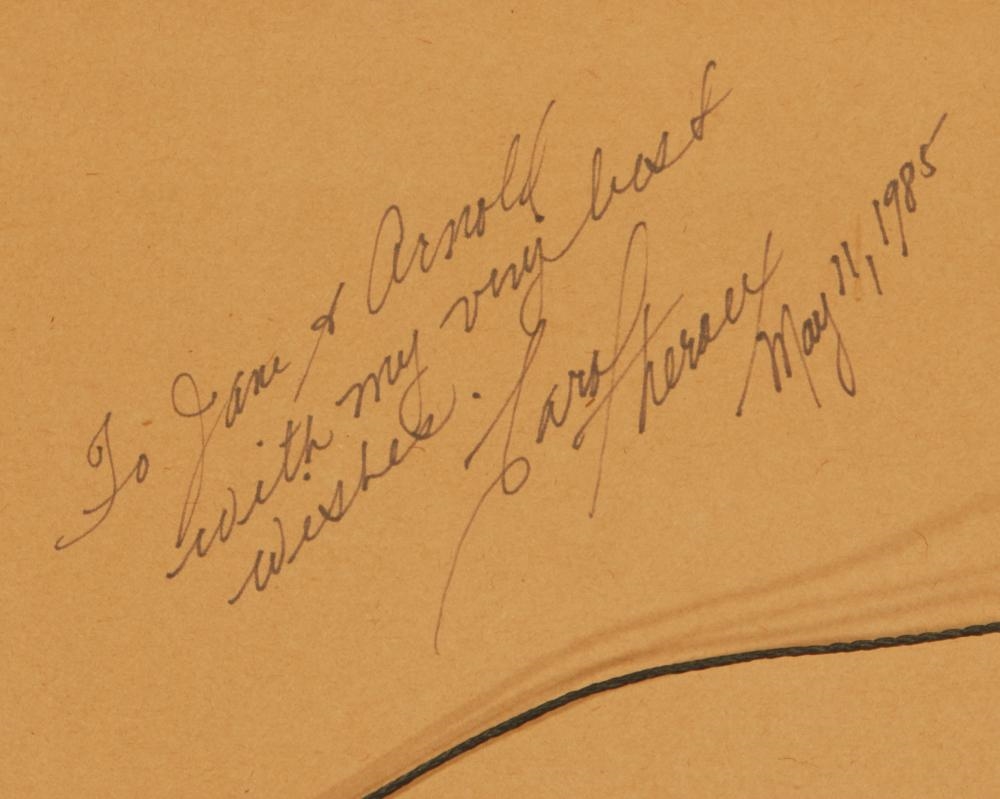 To Jane & Arnold
with my very best
wishes.
May 11, 1985